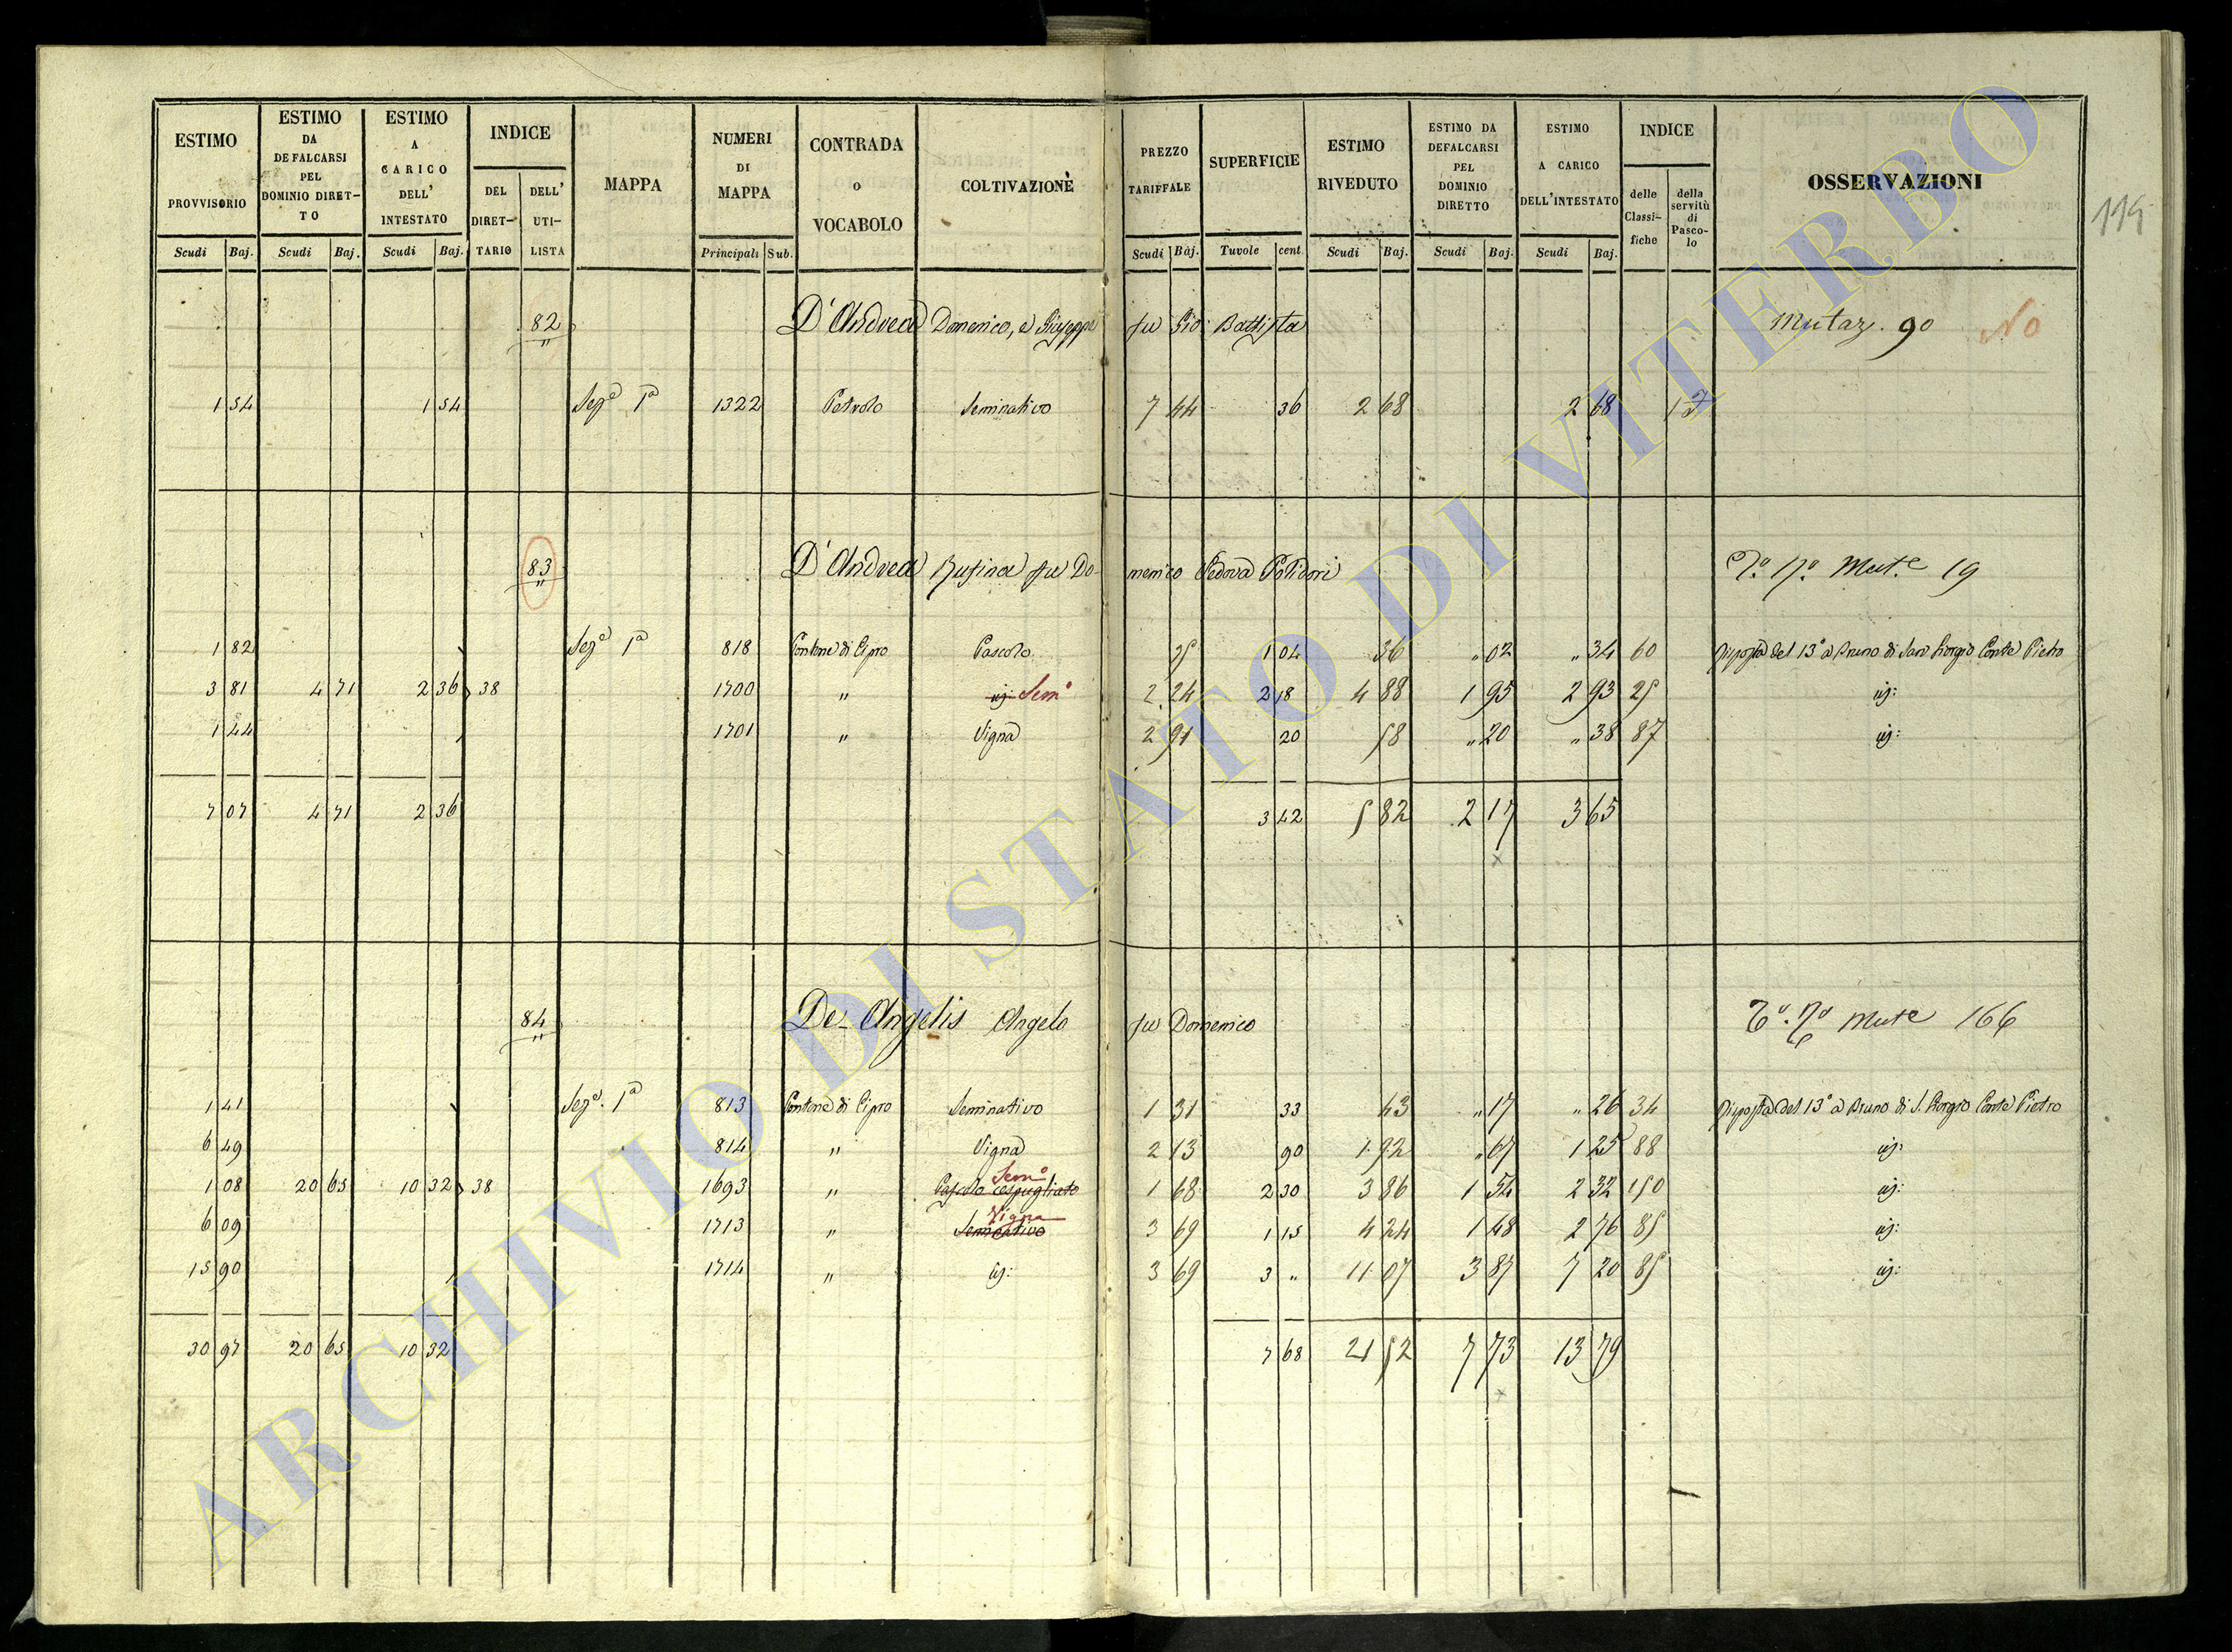 ESTIMO PROVVISORIO Scudi Baj.
ESTIMO DA DEFALCARSI PEL DOMINIO DIRET-TO Scudi Baj.
ESTIMO A CARICO DELL' INTESTATO Scudi Baj.
INDICE DEL DIRET-TARIO DELL' UTI-LISTA
MAPPA
NUMERI DI MAPPA Principali Sub.
CONTRADA O VOCABOLO
COLTIVAZIONE
PREZZO TARIFFALE Scudi Baj.
SUPERFICIE Tuvole cent.
ESTIMO RIVEDUTO Scudi Baj.
ESTIMO DA DEFALCARSI PEL DOMINIO DIRETTO Scudi Baj.
ESTIMO A CARICO DELL'INTESTATO Scudi Baj.
INDICE delle Classi-fiche della servitù di Pasco-lo
OSSERVAZIONI
115
82 D'Andrea Domenico, e Giuseppe fu Gio Battista Mutaz. 90 No
1 54 1 54 Sez.e 1a 1322 Petrolo Seminativo 7 44 36 2 68 2 68
83 D'Andrea Rufina fu Domenico Vedova Polidori Mut.e 19
1 82 Sez.e 1a 818 Contone di Cipro Pascolo 35 1 04 36 " 02 " 34 60 Risposta del 13° a Bruno di San Giorgio Conte Pietro
3 81 4 71 2 36 38 1700 " id: Sem° 2 24 2 18 4 88 1 95 2 93 25 id:
1 44 1701 " Vigna 2 91 20 58 " 20 " 38 87 id:
7 07 4 71 2 36 3 42 5 82 2 17 3 65
84 De-Angelis Angelo fu Domenico Mut.e 166
1 41 Sez.e 1a 813 Contone di Cipro Seminativo 1 31 33 43 " 17 " 26 34 Risposta del 13° a Bruno di S. Giorgio Conte Pietro
6 49 814 " Vigna 2 13 90 1 92 " 67 1 25 88 id:
1 08 20 65 10 32 38 1693 " Pascolo cespugliato Sem° 1 68 2 30 3 86 1 54 2 32 150 id:
6 09 1713 " Seminativo Vigna 3 69 1 15 4 24 1 48 2 76 85 id:
15 90 1714 " id: 3 69 3 " 11 07 3 87 7 20 85 id:
30 97 20 65 10 32 7 68 21 52 7 73 13 79
ARCHIVIO DI STATO DI VITERBO